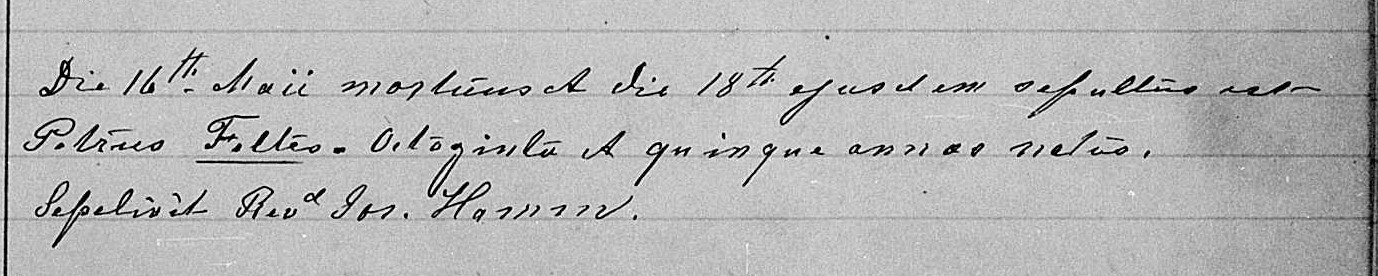 Die 16th. Maii mortuus et die 18th ejusdem sepultus est
Petrus Feltes. Octoginta et quinque annos natus.
Sepelivit Revd Jos. Hamm.